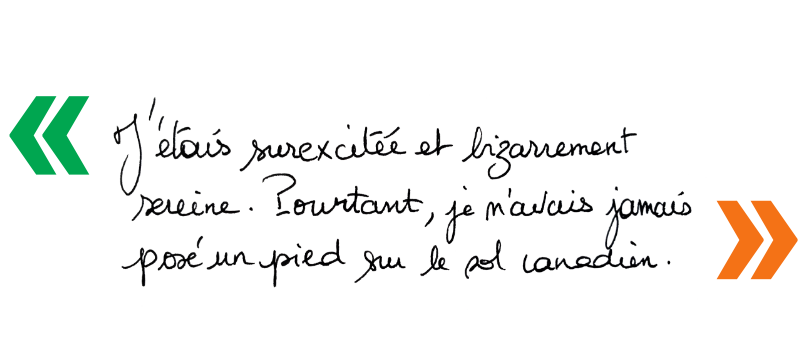 « J'étais surexcitée et bizarrement
sereine. Pourtant, je n'avais jamais
posé un pied sur le sol canadien. »